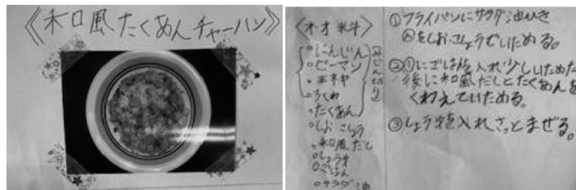 《和風たくあんチャーハン》
《材料》
・にんじん
・ピーマン
・玉ネギ
・ちくわ
・たくあん
みじん切り
・しおこしょう
・和風だし
・しょうゆ
・ごはん
・サラダ油
①フライパンにサラダ油ひき
をしおこしょうでいためる。
②①にごはんを入れ少しいためた
後に和風だしとたくあんを
くわえていためる。
③しょうゆを入れさっとまぜる。